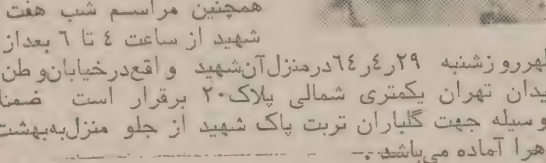 همچنین مراسم شب هفت
شهید از ساعت ٤ تا ٦ بعداز
ظهرروزشنبه ۲۹ر٤ر٦٤درمنزل‌آن‌شهید واقع‌درخیابان‌وطن
یدان تهران یکمتری شمالی پلاک۲۰ برقرار است ضمنا
وسیله جهت گلباران تربت پاک شهید از جلو منزل‌به‌بهشت
زهرا آماده می‌باشد.-